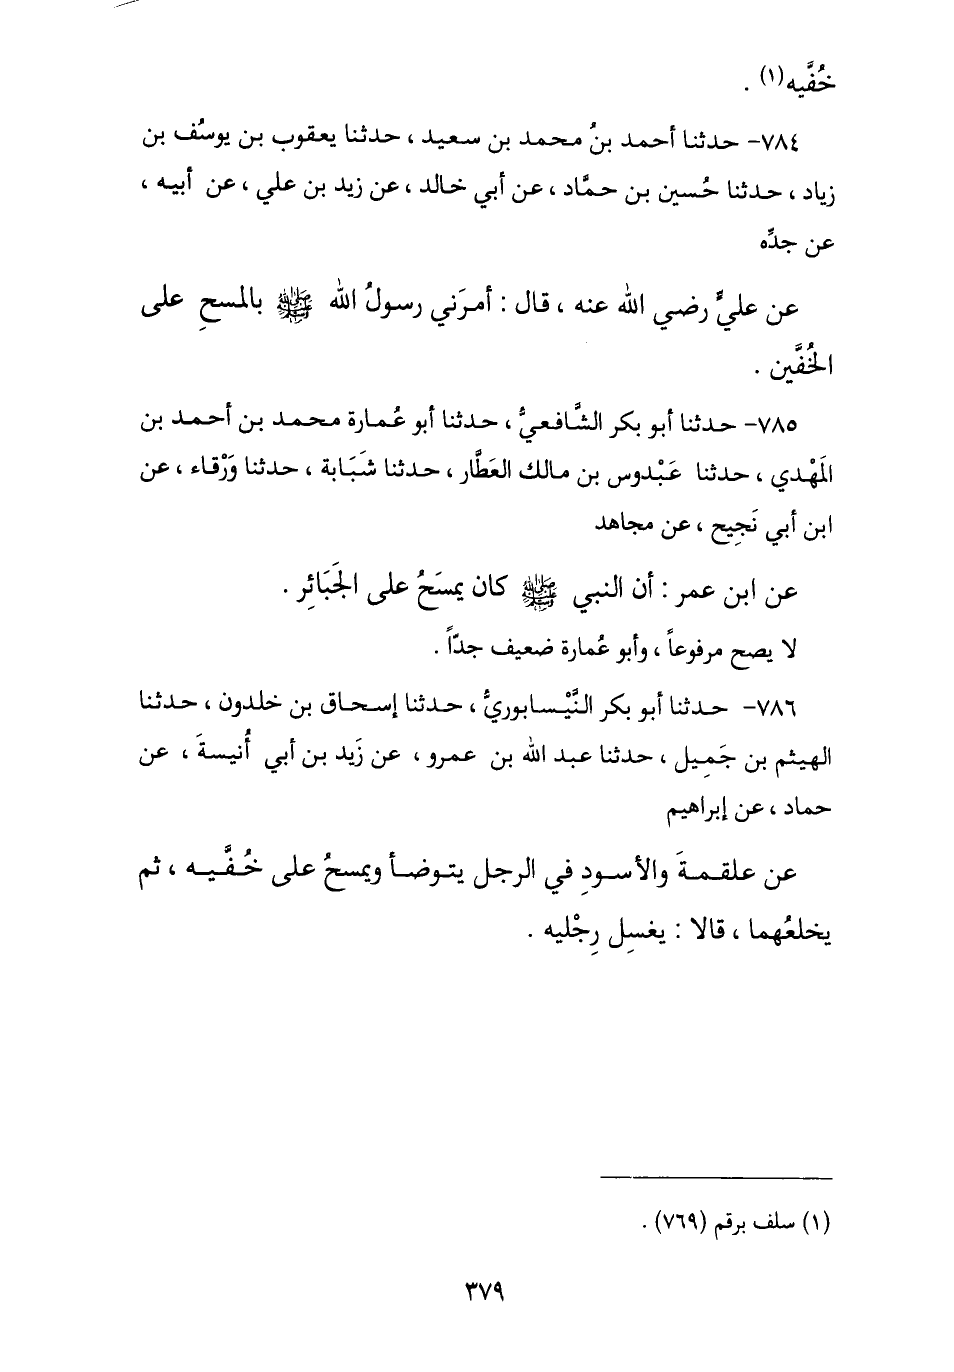 خُفَّيه(١) .
٧٨٤- حدثنا أحمد بنُ محمد بن سعيد ، حدثنا يعقوب بن يوسُف بن
زياد ، حدثنا حُسين بن حمَّاد ، عن أبي خالد ، عن زيد بن علي ، عن أبيه ،
عن جدِّه
عن عليٍّ رضي الله عنه ، قال : أمرَني رسولُ الله ﷺ بالمسحِ على
الخُفَّين .
٧٨٥- حدثنا أبو بكر الشَّافعيُّ ، حدثنا أبو عُمارة محمد بن أحمد بن
المَهْدي ، حدثنا عَبْدوس بن مالك العَطَّار ، حدثنا شَبَابة ، حدثنا وَرْقاء ، عن
ابن أبي نَجِيح ، عن مجاهد
عن ابن عمر : أن النبي ﷺ كان يمسَحُ على الجَبَائِر .
لا يصح مرفوعاً ، وأبو عُمارة ضعيف جدّاً .
٧٨٦- حدثنا أبو بكر النَّيْسابوريُّ ، حدثنا إسحاق بن خلدون ، حدثنا
الهيثم بن جَمِيل ، حدثنا عبد الله بن عمرو ، عن زَيد بن أبي أُنيسةَ ، عن
حماد ، عن إبراهيم
عن علقمةَ والأسودِ في الرجل يتوضأ ويمسحُ على خُفَّيه ، ثم
يخلعُهما ، قالا : يغسِل رِجْليه .
(١) سلف برقم (٧٦٩) .
٣٧٩